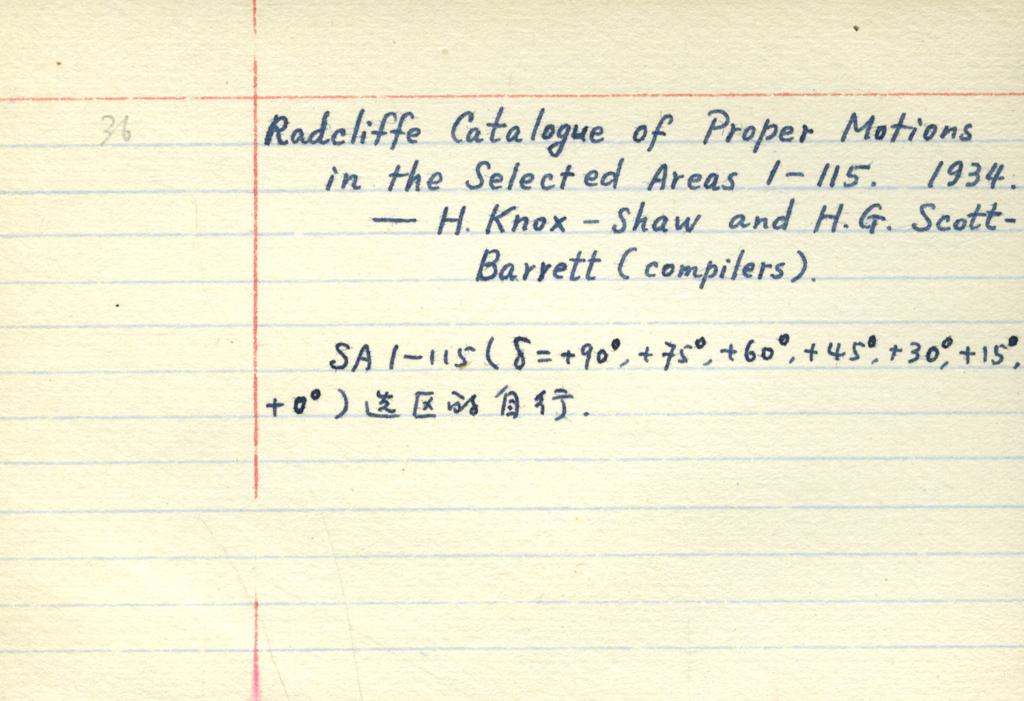 36
Radcliffe Catalogue of Proper Motions
in the Selected Areas 1-115. 1934.
— H. Knox-Shaw and H.G. Scott-
Barrett (compilers).
SA 1-115 (δ=+90°, +75°, +60°, +45°, +30°, +15°,
+0°) 选区的自行.